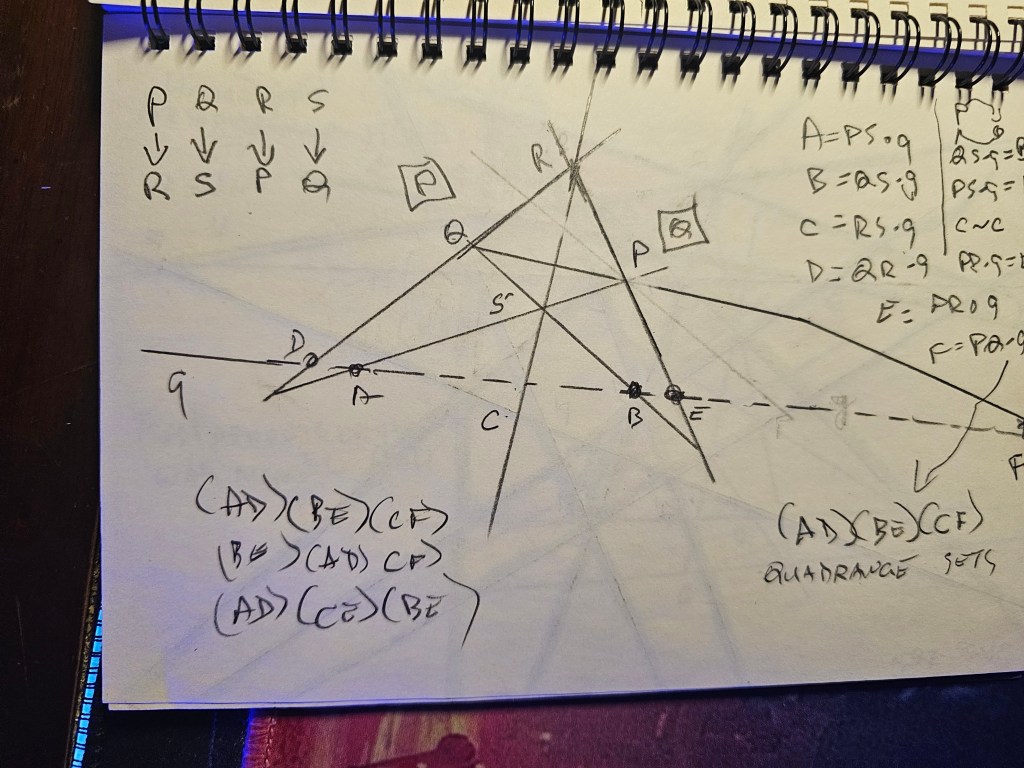 P Q R S
↓ ↓ ↓ ↓
R S P Q
P
Q
R
Q
P
S
D
A
C
B
E
F
g
g
F
A=PS·g
B=QS·g
C=RS·g
D=QR·g
E=PR·g
F=PQ·g
QS·g=
PS·g=
C~C
PR·g=
(AD)(BE)(CF)
(BE)(AD)CF)
(AD)(CE)(BE)
(AD)(BE)(CF)
QUADRANGE SETS